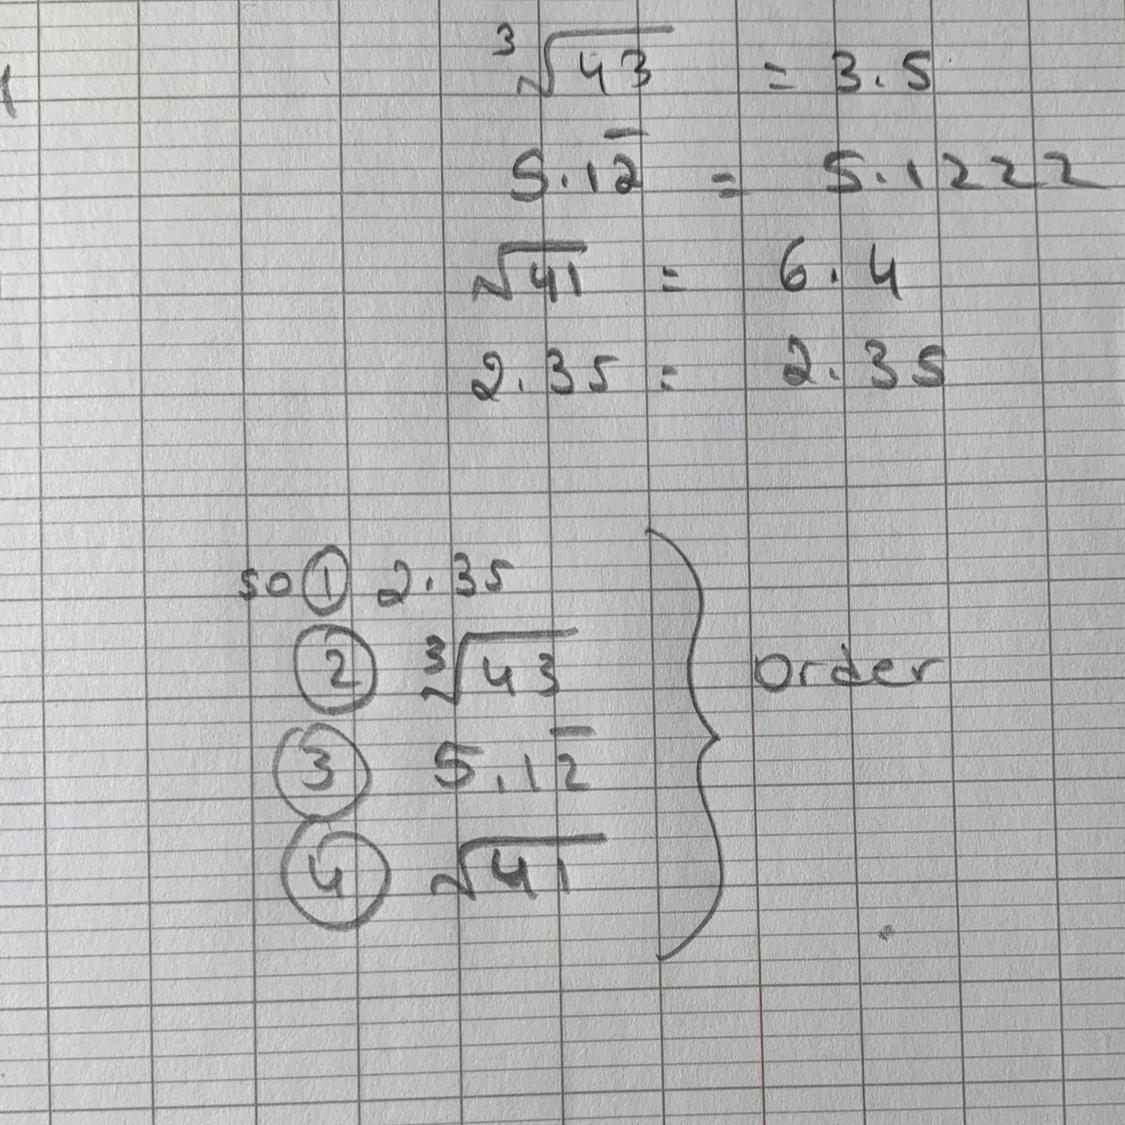 ³√43 = 3.5
5.12̅ = 5.1222
√41 = 6.4
2.35 = 2.35
so ① 2.35
② ³√43
③ 5.12̅
④ √41
order